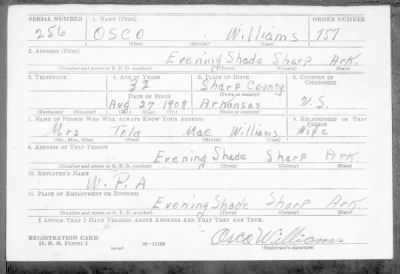 SERIAL NUMBER 1. NAME (Print) ORDER NUMBER
256 OSCO Williams 757
(First) (Middle) (Last)
2. ADDRESS (Print)
Evening Shade Sharp Ark.
(Number and street or R. F. D. number) (Town) (County) (State)
3. TELEPHONE 4. AGE IN YEARS 5. PLACE OF BIRTH 6. COUNTRY OF CITIZENSHIP
32 Sharp County
DATE OF BIRTH (Town or county)
Aug 27 1908 Arkansas U.S.
(Exchange) (Number) (Mo.) (Day) (Yr.) (State or country)
7. NAME OF PERSON WHO WILL ALWAYS KNOW YOUR ADDRESS 8. RELATIONSHIP OF THAT PERSON
Mrs Mae Williams Wife
(Mr., Mrs., Miss) (First) (Middle) (Last)
9. ADDRESS OF THAT PERSON
Evening Shade Sharp Ark.
(Number and street or R. F. D. number) (Town) (County) (State)
10. EMPLOYER'S NAME
W.P.A
11. PLACE OF EMPLOYMENT OR BUSINESS
Evening Shade Sharp Ark.
(Number and street or R. F. D. number) (Town) (County) (State)
I AFFIRM THAT I HAVE VERIFIED ABOVE ANSWERS AND THAT THEY ARE TRUE.
REGISTRATION CARD
D. S. S. Form 1 Osco Williams
(over) (Registrant's signature)